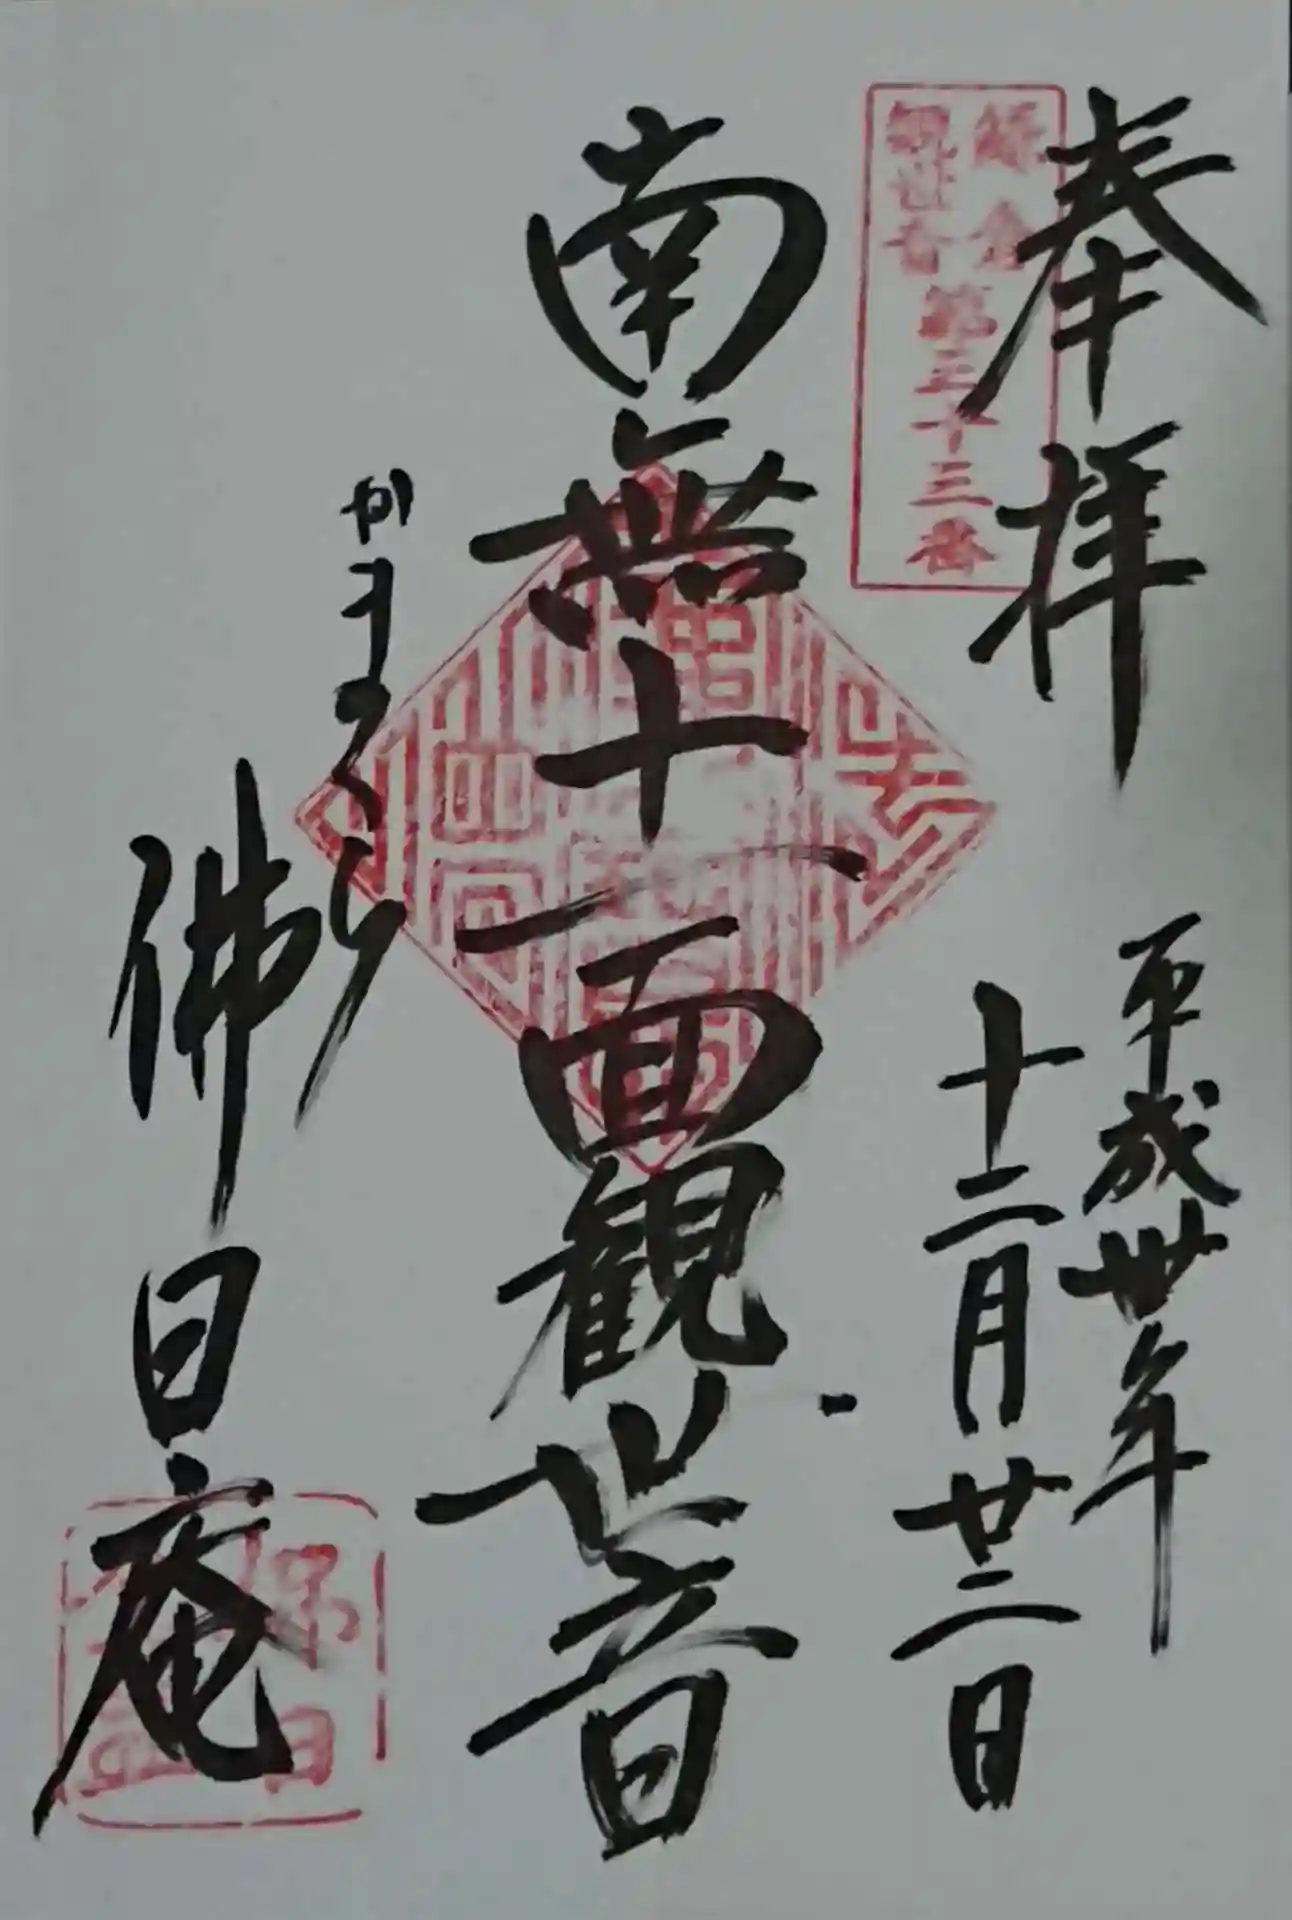 奉拝
鎌倉
観世音
第三十三番
平成丗年
十二月廿二日
南無十一面観世音
かまくら
佛日庵